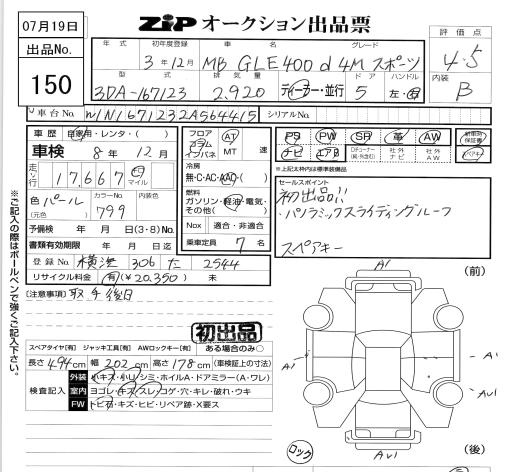 07月19日
ZIP オークション出品票
出品No.
150
評価点
4.5
内装
B
年式 初年度登録 車名 グレード
3年12月 MB GLE400d 4M スポーツ
型式 排気量 ドア ハンドル
3DA-167123 2,920 ディーラー・並行 5 左・右
車台No. W1N1671232A564415 シリアルNo.
車歴 自家用・レンタ・( )
車検 8年12月
走行 17,667 km マイル
色 パール (元色) カラーNo. 799 内装色
予備検 年 月 日(3・8) No.
書類有効期限 年 月 日迄
登録No. 横浜 306 た 2544
リサイクル料金 有(¥20,350) 未
フロア コラム インパネ AT MT 速
冷房
無・C・AC・AAC
燃料
ガソリン・軽油・電気・その他( )
Nox 適合・非適合
乗車定員 7 名
PS PW SR 革 AW 新車時保証書
ナビ エアB DFチューナー(純・外含む) 社外ナビ 社外AW スペアキー
※上記太枠内は標準装備品
セールスポイント
初出品!!
・パノラミックスライディングルーフ
スペアキー
[注意事項] 取手後日
初出品
スペアタイヤ[有] ジャッキ工具[有] AWロックキー[有] ある場合のみ○
長さ 494cm 幅 202cm 高さ 178cm (車検証上の寸法)
検査記入
外装 小キズ・小U・シミ・ホイルA・ドアミラー(A・ワレ)
室内 ヨゴレ・キズ・スレ・コゲ・穴・キレ・破れ・ウキ
FW トビ石・キズ・ヒビ・リペア跡・X要ス
※ご記入の際はボールペンで強くご記入下さい。
A1
(前)
A1
AU1
AU1
ロック
(後)